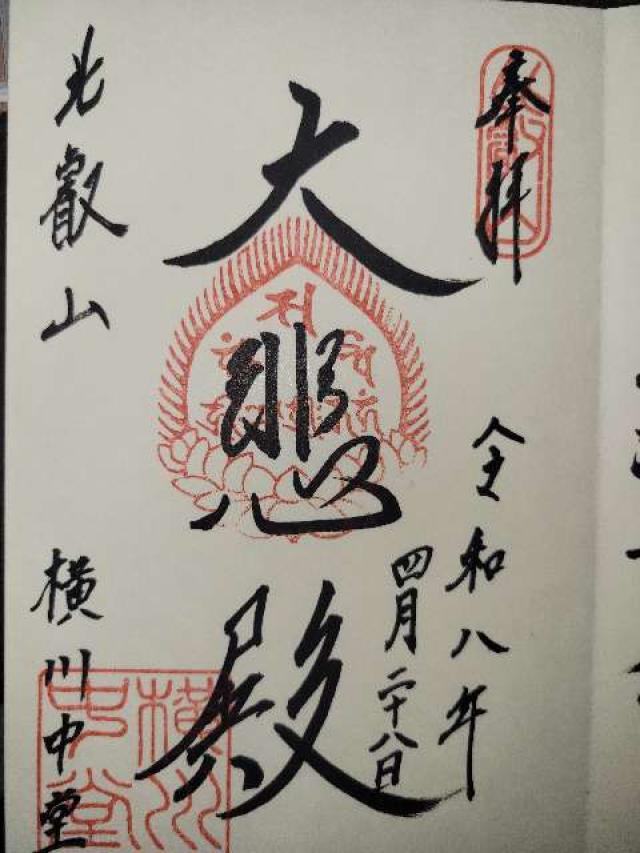 奉拝
令和八年
四月二十八日
大悲殿
比叡山
横川中堂
横川
中堂